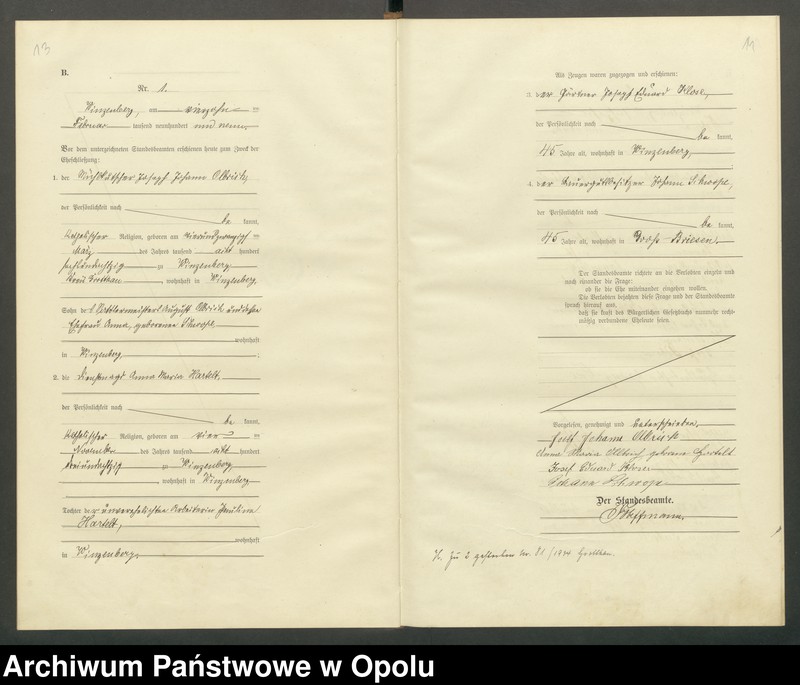 13
B.
Nr. 1.
Winzenberg, am vierzehn ten
Februar tausend neunhundert und neun.
Vor dem unterzeichneten Standesbeamten erschienen heute zum Zweck der
Eheschließung:
1. der Joseph Johann Olbrich,
der Persönlichkeit nach
be kannt,
katholischer Religion, geboren am vierundzwanzigsten
März des Jahres tausend acht hundert
zu Winzenberg
Kreis Grottkau, wohnhaft in Winzenberg,
Sohn des Sattlermeisters August Olbrich und dessen
Ehefrau Anna, geborenen Schwope,
wohnhaft
in Winzenberg.
2. die Dienstmagd Anna Maria Hartelt,
der Persönlichkeit nach
be kannt,
katholischer Religion, geboren am vier ten
November des Jahres tausend acht hundert
zu Winzenberg,
wohnhaft in Winzenberg
Tochter der unverehelichten Arbeiterin Pauline
Hartelt,
wohnhaft
in Winzenberg.
14
Als Zeugen waren zugezogen und erschienen:
3. der Gärtner Joseph Eduard Klose,
der Persönlichkeit nach
be kannt,
45 Jahre alt, wohnhaft in Winzenberg,
4. der Bauergutsbesitzer Johann Schwope,
der Persönlichkeit nach
be kannt,
45 Jahre alt, wohnhaft in Groß Briesen.
Der Standesbeamte richtete an die Verlobten einzeln und
nach einander die Frage:
ob sie die Ehe miteinander eingehen wollen.
Die Verlobten bejahten diese Frage und der Standesbeamte
sprach hierauf aus,
daß sie kraft des Bürgerlichen Gesetzbuchs nunmehr recht-
mäßig verbundene Eheleute seien.
Vorgelesen, genehmigt und unterschrieben.
Josef Johann Olbrich
Anna Maria Olbrich geborene Hartelt
Josef Eduard Klose
Johann Schwope
Der Standesbeamte.
Hoffmann.
zu 2 gestorben Nr. 21/1934
Archiwum Państwowe w Opolu